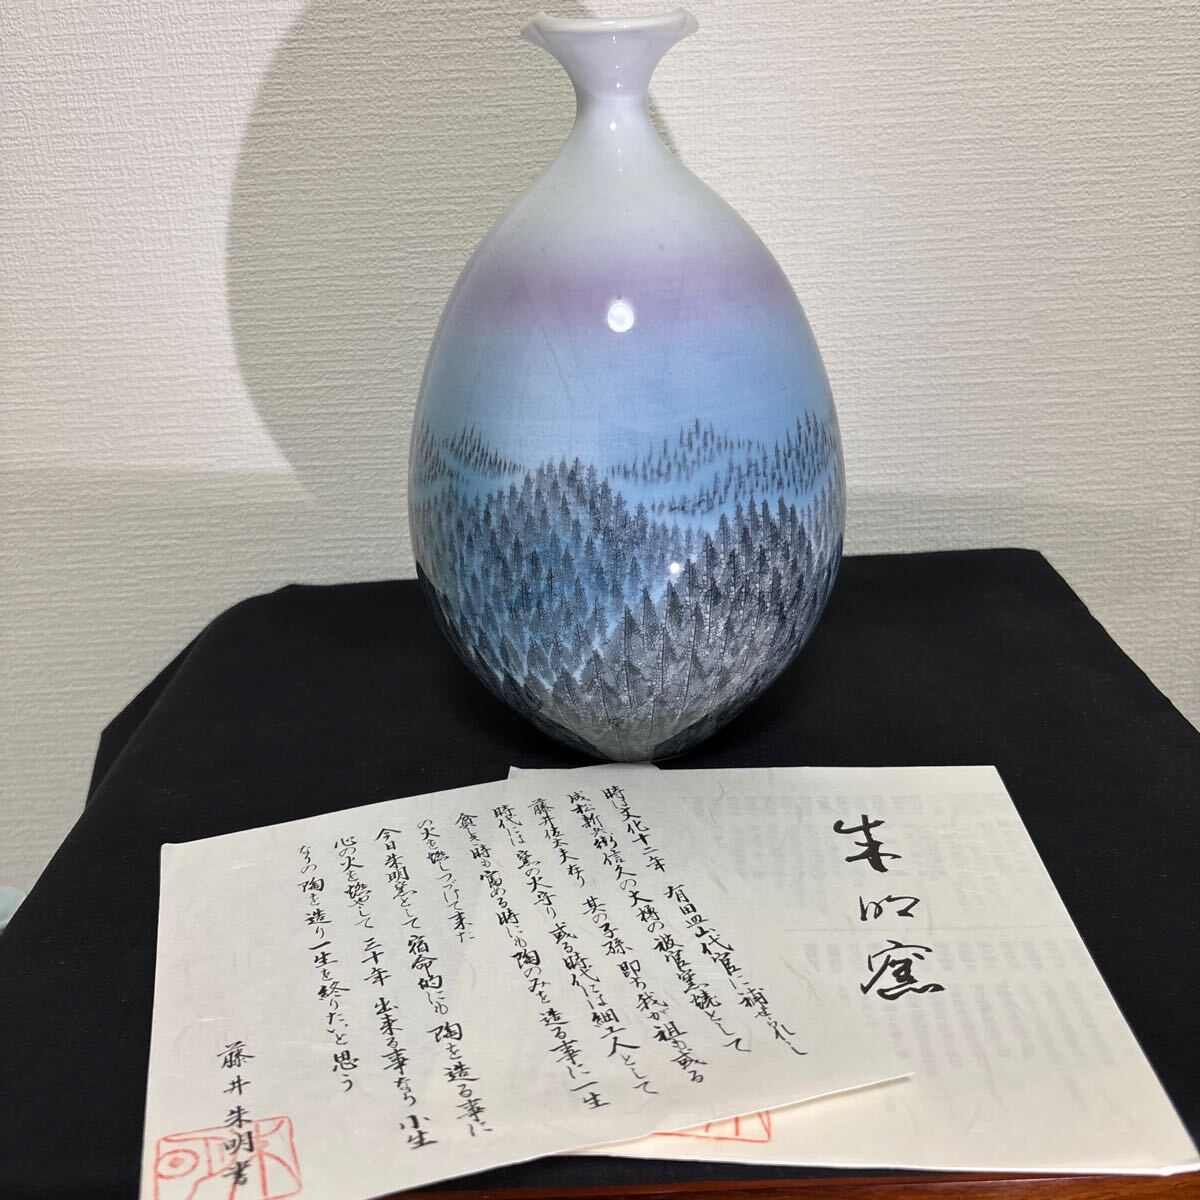 朱明窯
時は文化十二年 有田皿山代官に補せられし
成松新兵衛信久の大樽の被官窯焼として
藤井佐太夫在り 其の子孫 即ち我が祖も或る
時代には 窯の火守り 或る時代には細工人として
貧しき時も富める時にも陶のみを造る事に一生
の火を燃しつづけて来た
今日朱明窯として 宿命的にも 陶を造る事に
心の火を燃やして 三十年 出来る事なら 小生
なりの陶を造り一生を終りたいと思う
藤井朱明書